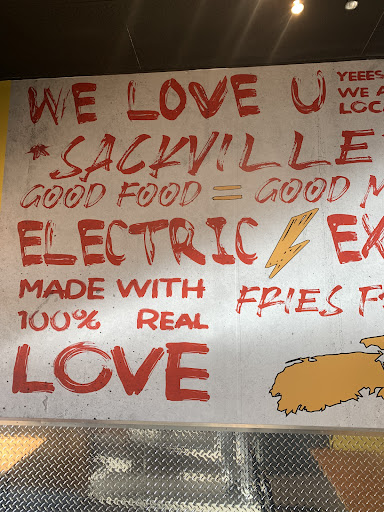 WE LOVE U
YEEES
WE A
LOC
* SACKVILLE
GOOD FOOD = GOOD M
ELECTRIC EX
MADE WITH
100% REAL
LOVE
FRIES F